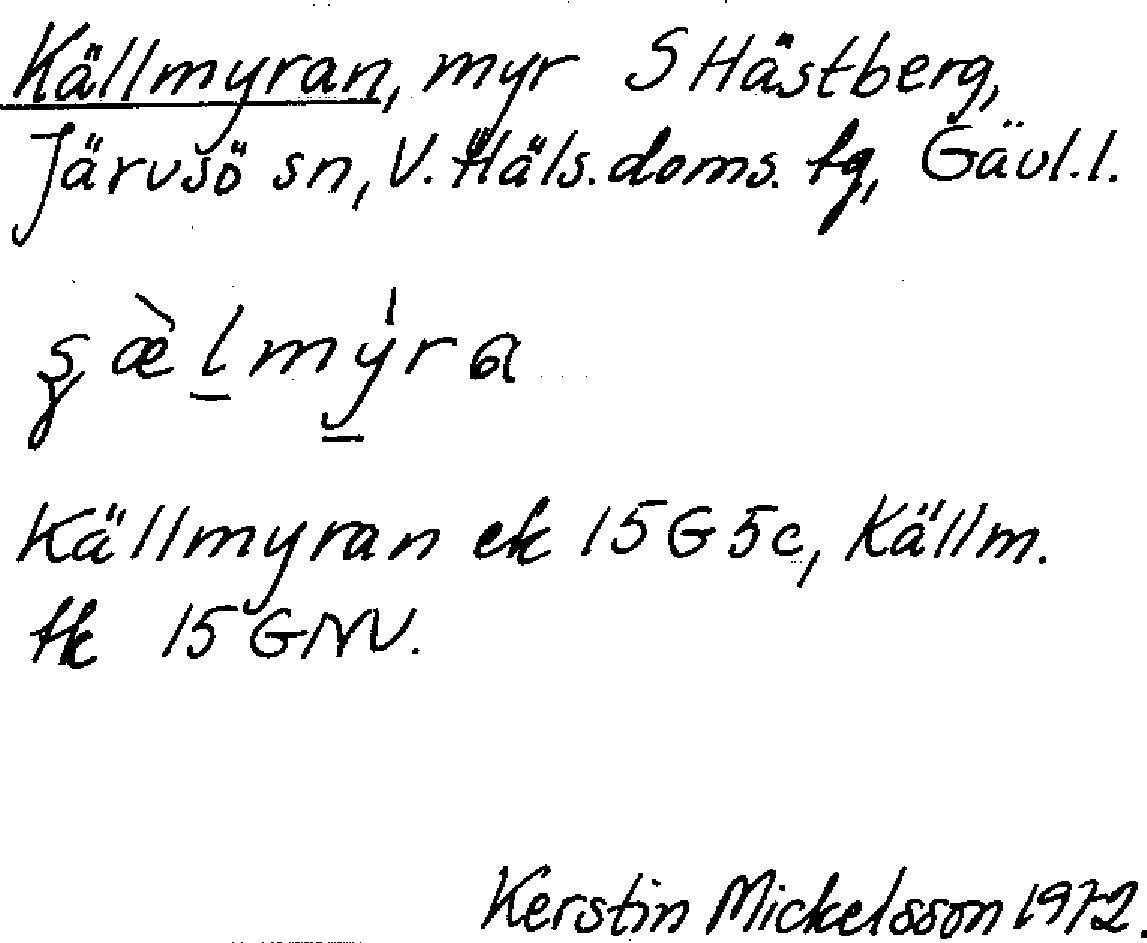 Källmyran, myr S Hästberg,
Järvsö sn, V. Häls. doms. tg, Gävl.l.
Källmyran ek 15G5c, Källm.
tk 15 GNV.
Kerstin Mickelsson 1972.